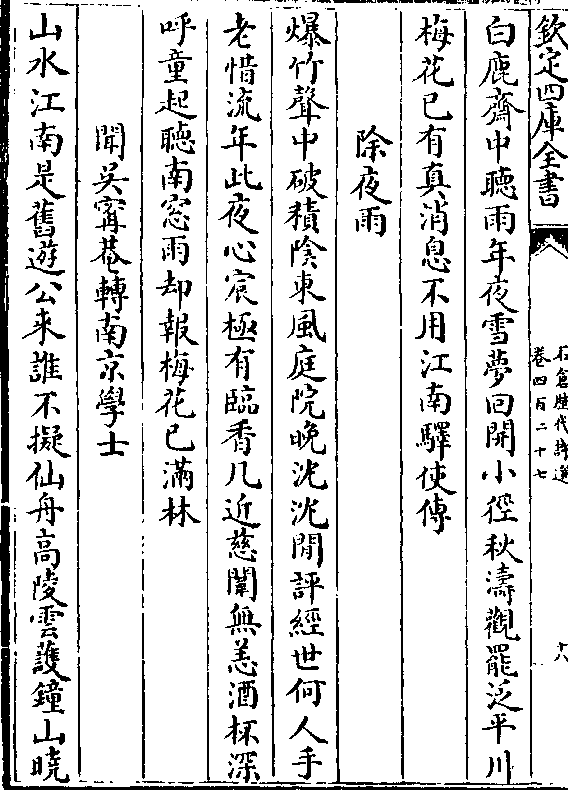 欽定四庫全書
石倉歷代詩選
卷四百二十七
十八
白鹿齋中聽雨年夜雪夢回開小徑秋濤觀罷泛平川
梅花已有真消息不用江南驛使傳
除夜雨
爆竹聲中破積隂東風庭院晚沈沈閒評經世何人手
老惜流年此夜心宸極有臨香几近慈闈無恙酒杯深
呼童起聽南窓雨却報梅花已滿林
聞吳寗菴轉南京學士
山水江南是舊遊公来誰不擬仙舟高陵雲護鐘山曉